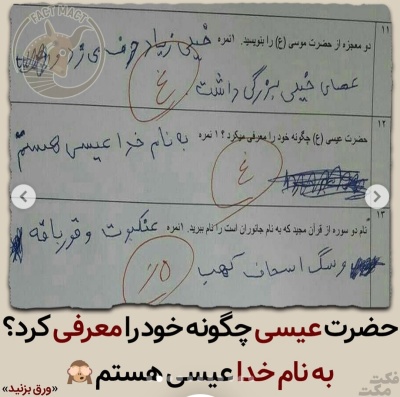 FACT MACT
۱۱
دو معجزه از حضرت موسی (ع) را بنویسید. ۱نمره خیلی زیاد حرف می زد
عصای خیلی بزرگی داشت غ
۱۲
حضرت عیسی (ع) چگونه خود را معرفی میکرد ؟ ۱ نمره به نام خدا عیسی هستم
غ
۱۳
نام دو سوره از قرآن مجید که به نام جانوران است را نام ببرید. ۱نمره عنکبوت و قورباقه
و سگ اسحاف کهب
حضرت عیسی چگونه خود را معرفی کرد؟
به نام خدا عیسی هستم
«ورق بزنید»
فکت مکت